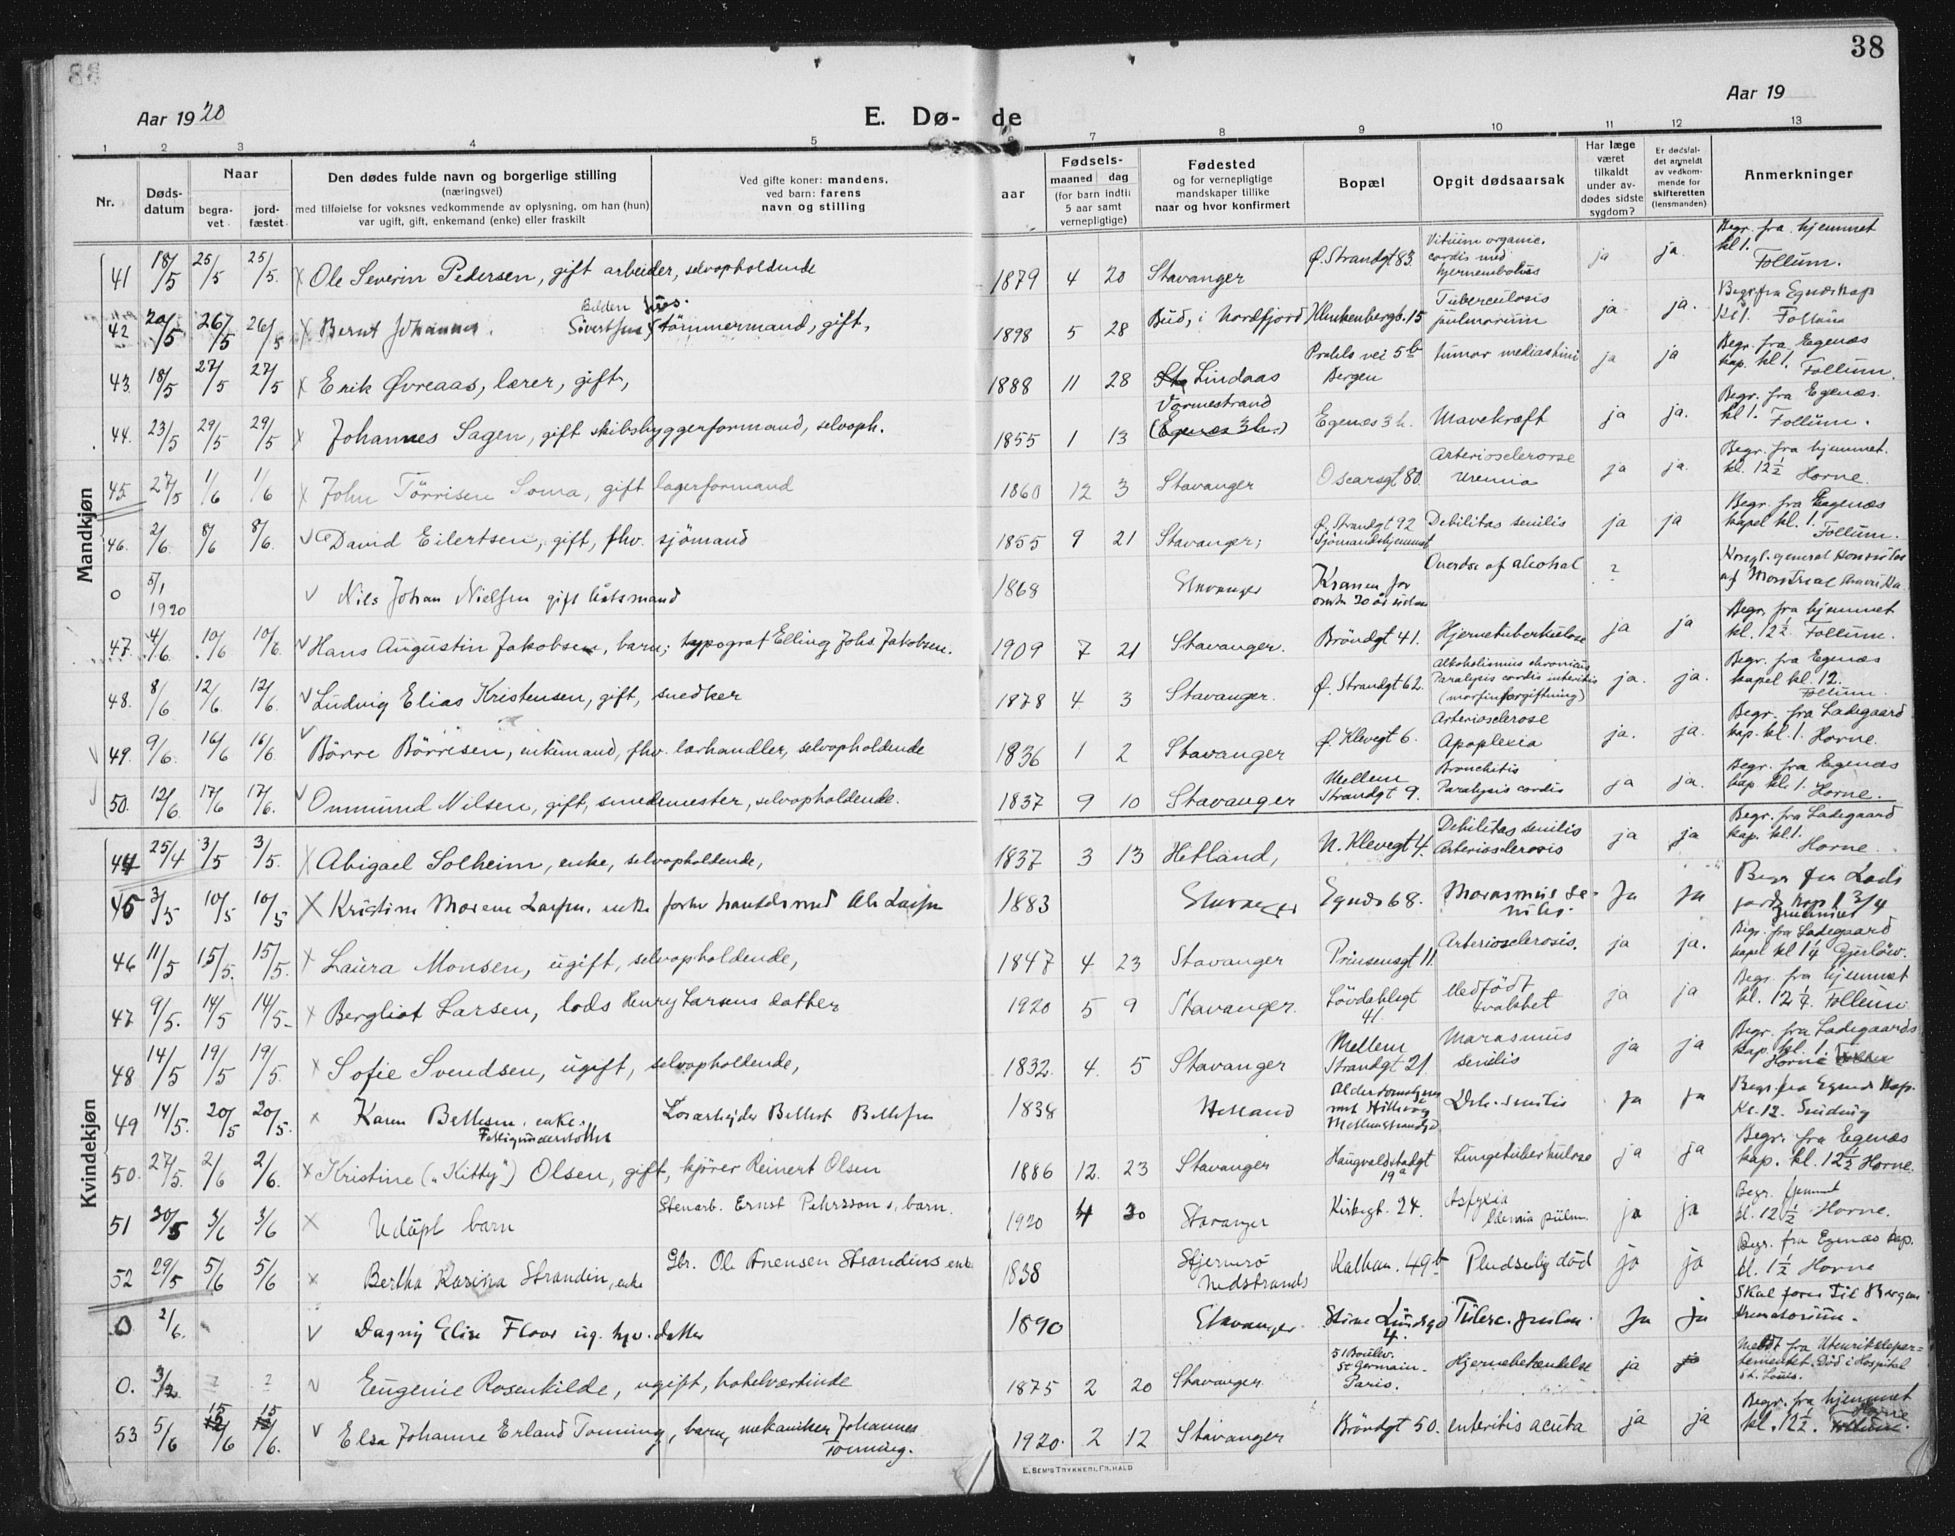 38
Aar 1920
E. Dø- de
Aar 19
1 2 3 4 5 7 8 9 10 11 12 13
Nr. Døds-datum Naar begra-vet jord-fæstet
Den dødes fulde navn og borgerlige stilling
(næringsvei)
med tilføielse for voksnes vedkommende av oplysning, om han (hun)
var ugift, gift, enkemand (enke) eller fraskilt
Ved gifte koner: mandens,
ved barn: farens
navn og stilling
aar
Fødsels-
maaned dag
(for barn indtil
5 aar samt
vernepligtige)
Fødested
og for vernepligtige
mandskaper tillike
naar og hvor konfirmert
Bopæl
Opgit dødsaarsak
Har læge
været
tilkaldt
under av-
dødes sidste
sygdom?
Er dødsfal-
det anmeldt
av vedkom-
mende for
skifteretten
(lensmanden)
Anmerkninger
Mandkjøn
41 18/5 25/5 25/5 Ole Severin Pedersen, gift arbeider, selvopholdende 1879 4 20 Stavanger Ø. Strandgt 83. Vitium organic. cordis med hjerneembolus ja ja. Begr. fra hjemmet kl 1. Follum.
42 20/5 26/5 26/5 Bernt Johannes Sivertsen, tømmermand, gift, 1898 5 28 Bud, i Nordfjord Blenkenbergt. 15 Tuberculosis pulmonum ja ja. Begr. fra Egenæs kap kl 1. Follum
43. 18/5 27/5 27/5 Erik Øvreaas, lærer, gift, 1888 11 28 Lindaas Bergen tumor mediastini ja ja Begr. fra Egenæs kap. kl 1. Follum.
44. 23/5 29/5 29/5 Johannes Sagen, gift skibsbyggerformand, selvoph. 1855 1 13 Vormestrand (Egenes 3 h.) Egenæs 3 h. Mavekræft ja ja. Begr. fra Egenæs. kl 1. Follum.
45. 27/5 1/6 1/6 John Tørrisen Soma, gift lagerformand 1860 12 3 Stavanger Oscarsgt 80 Arteriosclerose Uremia ja ja. Begr. fra hjemmet. kl. 12 1/2 Horne.
46. 2/6. 8/6 8/6. David Eilertsen, gift, fhv. sjømand 1855 9 21 Stavanger; Ø. Strandgt 92 Sjømandshjemmet Debilitas senilis ja ja Begr. fra Egenæs kapel kl. 1. Follum.
0 5/1 1920 Nils Johan Nielsen gift baatsmand 1868 Stavanger Overdose of alcohol ? Kongl. general Konsulat af Montreal
47. 4/6. 10/6 10/6. Hans Augustin Jakobsen, barn; typograf Elling Johs Jakobsen. 1909 7 21 Stavanger. Brøndgt 41. Hjernetuberkulose ja ja Begr. fra hjemmet kl. 12 1/2. Follum.
48. 8/6 12/6. 12/6. Ludvig Elias Kristensen, gift, snedker 1878 4. 3 Stavanger. Ø. Strandgt 62. Alkoholismus chronicus Paralysis cordis (morfinforgiftning) ja. ja. Begr. fra Egenæs kapel kl. 12. Follum.
49. 9/6. 16/6 16/6. Børre Børresen, enkemand, fhv. lærhandler, selvopholdende 1836 1 2 Stavanger Ø. Klevegt 6. Arteriosclerose Apoplexia ja. ja. Begr. fra Ladegaard kap. kl. 1. Horne.
50. 12/6. 17/6 17/6. Ommund Nilsen, gift, smedemester, selvopholdende. 1837 9 10 Stavanger Mellem Strandgt 9. Bronchitis Paralysis cordis ja ja. Begr. fra Egenæs kap kl. 1. Horne.
Kvindekjøn
44 25/4 3/5 3/5. Abigael Solheim, enke, selvopholdende, 1837 3 13 Hetland, N. Klevegt 4. Debilitas senilis Arteriosclerosis ja ja Begr. fra Ladegaard kap. kl 1. Horne.
45 3/5 10/5 10/5 Kristine Larsen. enke 1883 Stavanger Egnæs 68. Marasmus senilis. Ja Ja Begr fra Lade gards kap 1 3/4
46 11/5 15/5. 15/5. Laura Monsen, ugift, selvopholdende, 1847 4 23 Stavanger Prinsensgt 11. Arteriosclerosis. ja ja. Begr. fra Ladegaard kapel kl 1 1/4 Gjerløw.
47 9/5. 14/5 14/5. Bergliot Larsen, lods Henry Larsens datter 1920 5 9 Stavanger. Løvdahlsgt 41. Medfødt svakhet ja ja Begr. fra hjemmet kl. 12 1/4. Follum.
48 14/5 19/5 19/5. Sofie Svendsen, ugift, selvopholdende, 1832. 4. 5 Stavanger Mellem Strandgt 21. Marasmus senilis ja ja Begr. fra Ladegaards kap. kl. 1. Horne
49 14/5. 20/5 20/5. Karen Bettesen. enke. Fattigunderstøttet Løsarbeider 1838 Hetland Deb. senilis Ja Ja Begr. fra Egenæs kap. Kl. 12. Sinding
50. 27/5. 2/6 2/6. Kristine („Kitty") Olsen, gift, kjører Reinert Olsen 1886 12. 23 Stavanger Haugvaldstadgt 19a Lungetuberkulose ja ja Begr. fra Egenæs kap. kl. 12 1/2 Horne.
51 30/5 3/6 3/6 Udøpt barn Stenarb. Ernst Pehrssons, barn. 1920 4 30 Stavanger Kirkegt. 24. Asfyxia Ødemia pulm. ja ja Begr. hjemmet kl. 12 1/2 Horne.
52 29/5 5/6 5/6 Bertha Karina Strandin, enke Gbr. Ole Strandins enke 1838 Stjernerø Nedstrands Kalhan. 49b Pludselig død ja ja Begr. fra Egenæs kap. kl. 1 1/2 Horne
0 2/6. Dagny Elise Floor ug. datter 1890 Stavanger. Stine Lundsgd 4. Tuberc. pulm. Ja ja Skal føres til Bergens Krematorium.
0. 3/2. ? ? Eugenie Rosenkilde, ugift, hotelværtinde 1875 2 20 Stavanger 51 Boulev. St Germain. Paris. Hjernebetændelse ja ja Meldt fra Utenriksdepar-tementet. Død i Hospital St. Louis.
53 5/6 15/6 15/6. Elsa Johanne Erland Tonning, barn, mekaniker Johannes Tonning. 1920. 2 12 Stavanger Brøndgt 50. enteritis acuta ja ja Begr. fra hjemmet kl. 12 1/2. Horne Follum.
E. SEM'S TRYKKERI, FR.HALD